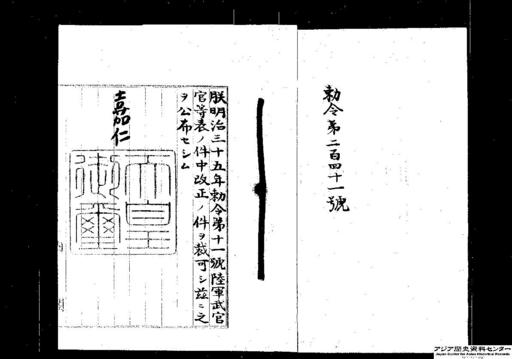 勅令第二百四十一號
朕明治三十五年勅令第十一號陸軍武官
官等表ノ件中改正ノ件ヲ裁可シ茲ニ之
ヲ公布セシム
嘉仁
天皇
御璽
アジア歴史資料センター
Japan Center for Asian Historical Records